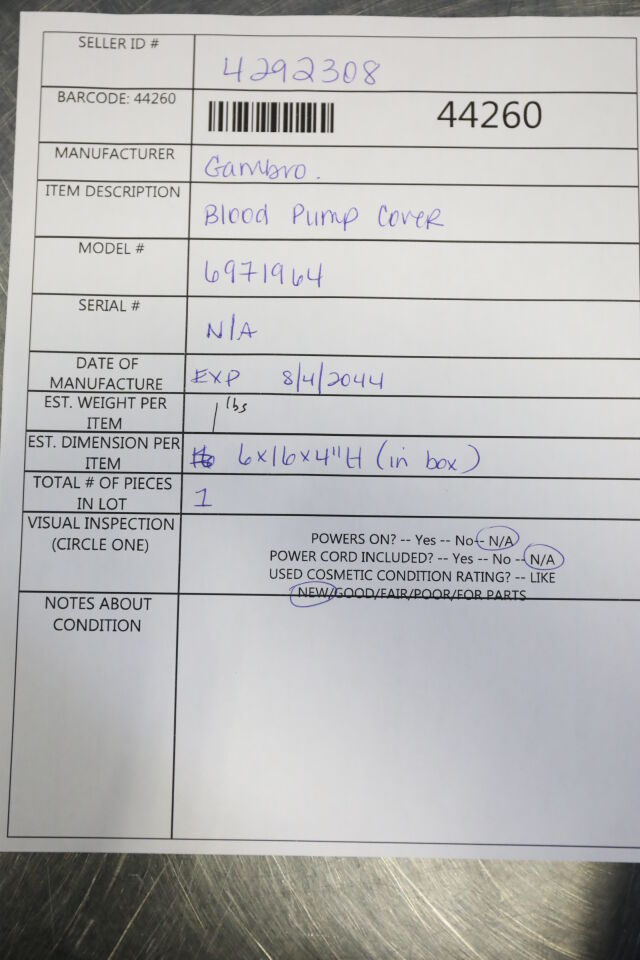 SELLER ID # 4292308
BARCODE: 44260 44260
MANUFACTURER Gambro.
ITEM DESCRIPTION Blood Pump Cover
MODEL # 6971964
SERIAL # N/A
DATE OF
MANUFACTURE EXP 8/4/2044
EST. WEIGHT PER
ITEM 1 lbs
EST. DIMENSION PER
ITEM 6x16x4"H (in box)
TOTAL # OF PIECES
IN LOT 1
VISUAL INSPECTION
(CIRCLE ONE)
POWERS ON? -- Yes -- No-- N/A
POWER CORD INCLUDED? -- Yes -- No -- N/A
USED COSMETIC CONDITION RATING? -- LIKE
NEW/GOOD/FAIR/POOR/FOR PARTS
NOTES ABOUT
CONDITION